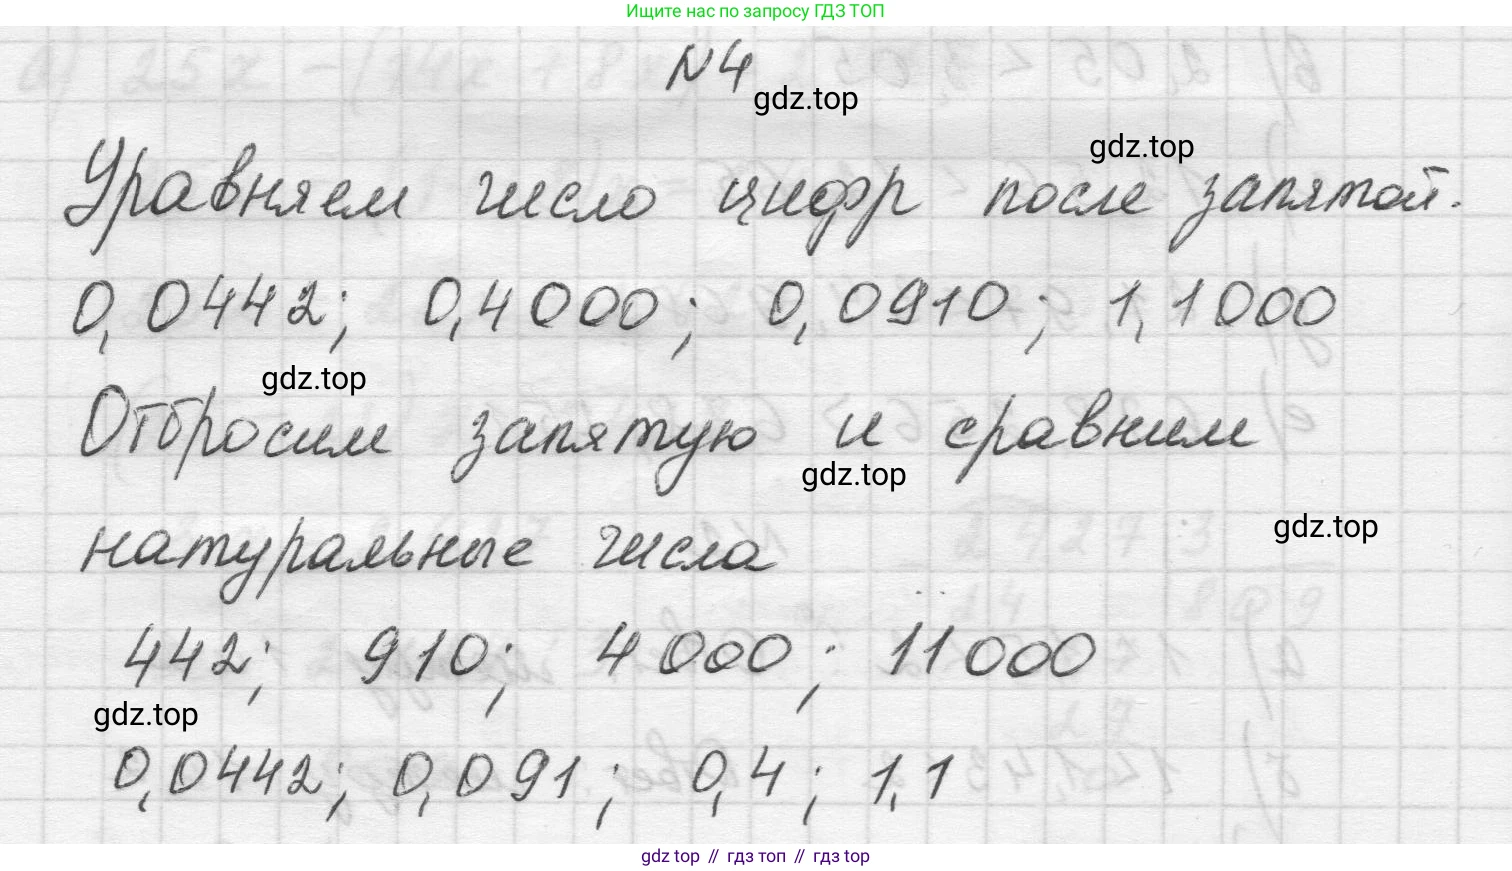 Ищите нас по запросу ГДЗ ТОП
№4
gdz.top
gdz.top
Уравняем число цифр после запятой.
0,0442; 0,4000; 0,0910; 1,1000
gdz.top
Отбросим запятую и сравним
gdz.top
gdz.top
натуральные числа
442; 910; 4000; 11000
gdz.top
0,0442; 0,091; 0,4; 1,1
gdz top // гдз топ // гдз top